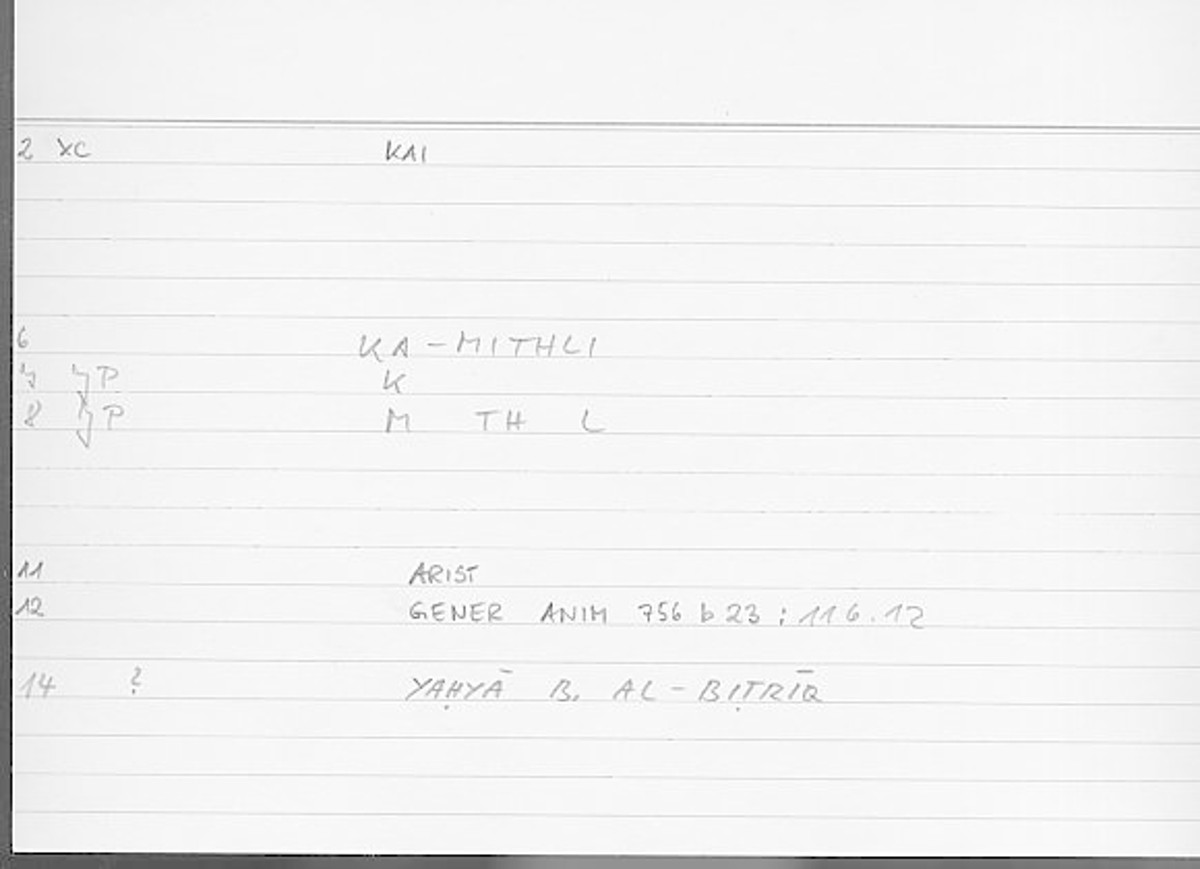 2 XC KAI
6 KA-MITHLI
7 P K
8 P M TH L
11 ARIST
12 GENER ANIM 756 b 23 : 116.12
14 ? YAḤYĀ B. AL-BIṬRĪQ